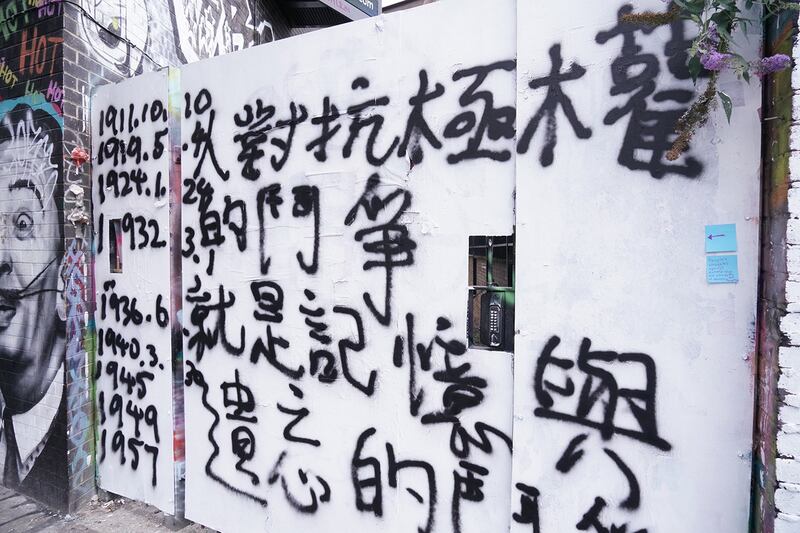 HOT
HOT
HOT
.com
1911.10.10
1919.5.
1924.1.
1932.3.1
1936.6.
1940.3.30
1945
1949
1957
人對抗極權
的鬥爭
就是記憶與
遺忘的鬥